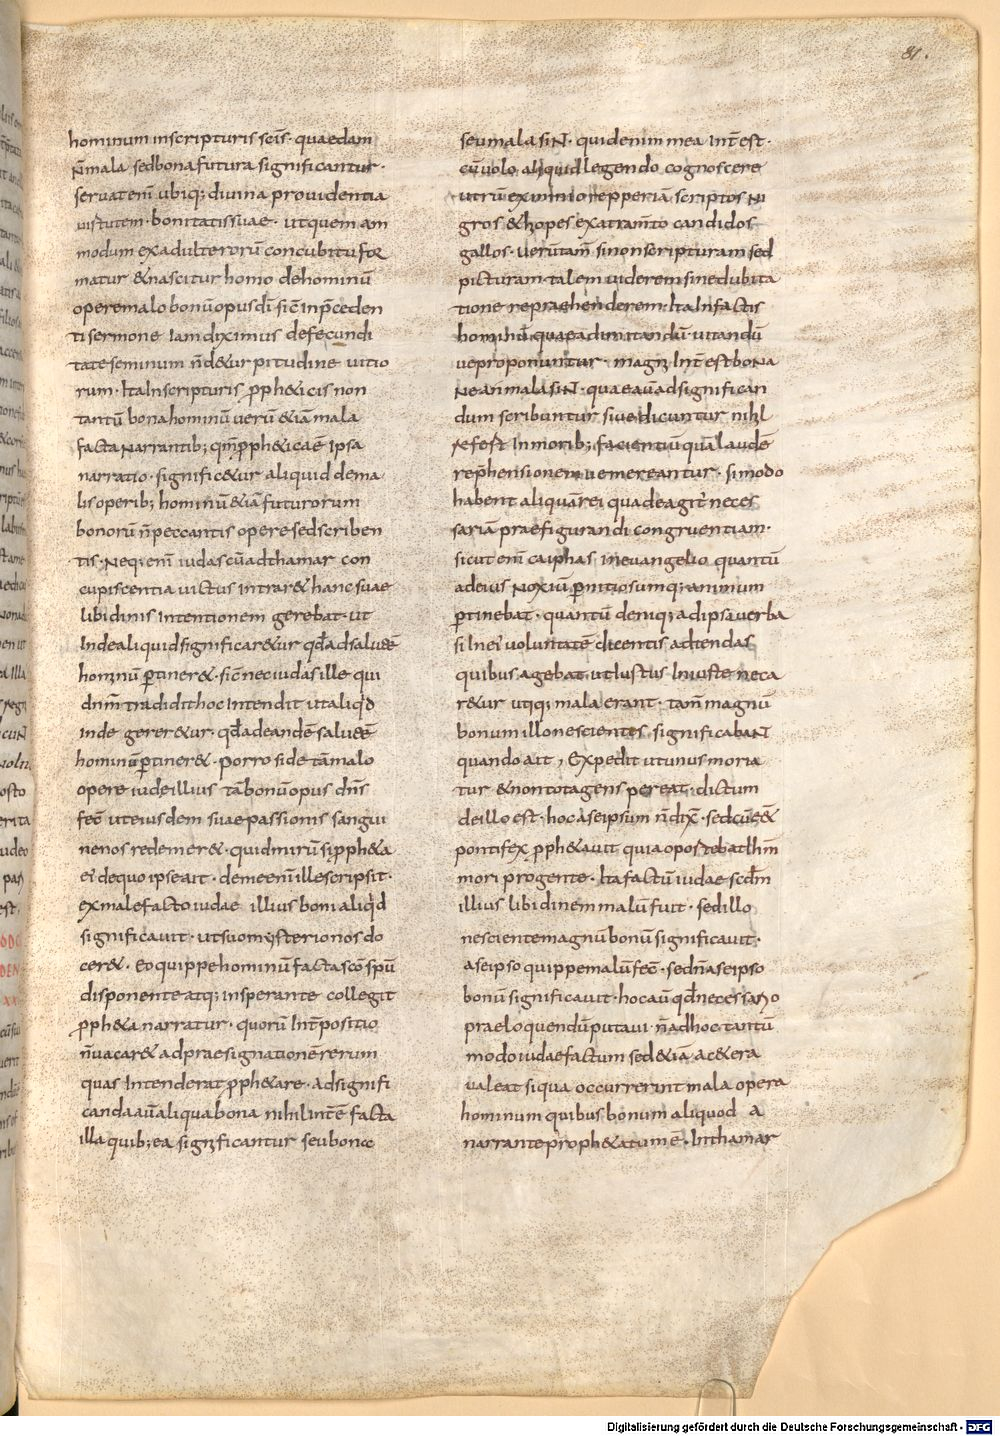 81.
hominum inscripturis scīs· quaedam
n̄mala sedbonafutura significantur·
seruatenī ubiq; diuina prouidentia
uirtutem· bonitatissuae· utquem am
modum exadulterorū concubitu for
matur &nascitur homo dehominū
operemalo bonū opus dī· sic̄ inp̄ceden
ti sermone Iam diximus defecundi
tate seminum n̄ d& ur pitudine uitio
rum· Ita Inscripturis ꝓph&icis non
tantū bona hominū uerū &iā mala
facta Narrantib; qm̄ ꝓph&ica ē Ipsa
narratio· signific&ur aliquid dema
lis operib; hominū &iā futurorum
bonorū n̄ peccantis opere sed scriben
tis· Neq; enī iudas cū adthamar con
cupiscentia uictus intrar& hanc suae
libidinis Intentionem gerebat· ut
Inde aliquid significar&ur qd̄ ad salutē
hominū ꝑtiner&· sic̄ nec iudas ille qui
dn̄m tradidit hoc Intendit ut aliqd
inde gerer&ur· qd̄ ad eandē salutē
hominū ꝑtiner&· porro si de tā malo
opere iudeillius tā bonū opus dn̄s
fec̄ ut eiusdem suae passionis sangui
ne nos redemer&· quid mirū si ꝓph&a
ei' de quo ipse ait· deme enī ille scripsit·
ex malefacto iudae illius boni aliqd
significauit· ut suo mysterio nos do
cer&· Eo quippe hominū facta scō sp̄u
disponente atq; insperante collegit
ꝓph&a narratur· quorū Int̄positio
n̄ uacar& ad praesignationē rerum
quas Intenderat ꝓph&are· Adsignifi
canda aū aliqua bona nihil intē facta
illa quib; ea significantur seu bona
seu mala sint· quid enim mea Int̄est·
cū uolo aliquid legendo cognoscere
utrū ex minio repperiā scriptos ni
gros &hiopes ex atram̄to candidos
gallos· uerūtam̄ si non scripturam sed
picturam· talem uiderem sine dubita
tione repraehenderem· Ita In factis
hominū quae ad imitandū· uitandū
ue proponuntur· magni Int̄est bona
ne an mala sint· quae aū ad significan
dum scribuntur siue dicuntur nihil
refert In morib; facientiū quā laudē
rep̄hensionem ue mereantur· si modo
habent aliquā rei qua de agit' neces
sariā praefigurandi congruentiam·
sicut enī caiphas in euangelio quantū
ad eius noxiū ꝑnitiosumq; animum
ꝑtinebat· quantū deniq; ad ipsa uerba
si In ei' uoluntatē dicentis adtendas
quibus agebat ut Iustus Iniuste neca
r&ur utiq; mala erant· tam̄ magnū
bonum illo nesciente significabant
quando ait, Expedit ut unus moria
tur & non tota gens pereat· dictum
de illo est· hoc a se ipsum n̄ dix̄· sed cū e&
pontifex ꝓph&auit quia oportebat ihm̄
mori pro gente· Ita factū iudae scdm̄
illius libidinem malū fuit· sed illo
nesciente magnū bonū significauit·
a se ipso quippe malū fec̄· sed n̄ a se ipso
bonū significauit· hoc aū qd̄ necessario
praeloquendū putaui· n̄ ad hoc tantū
modo iudae factum sed &iā ac&era
ualeat siqua occurrerint mala opera
hominum quibus bonum aliquod a
narrante proph&atum ē· In thamar
Digitalisierung gefördert durch die Deutsche Forschungsgemeinschaft - DFG